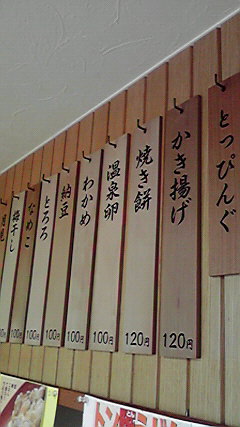 とっぴんぐ
かき揚げ 120円
焼き餅 120円
温泉卵 100円
わかめ 100円
納豆 100円
とろろ 100円
なめこ 100円
梅干し 100円
月見